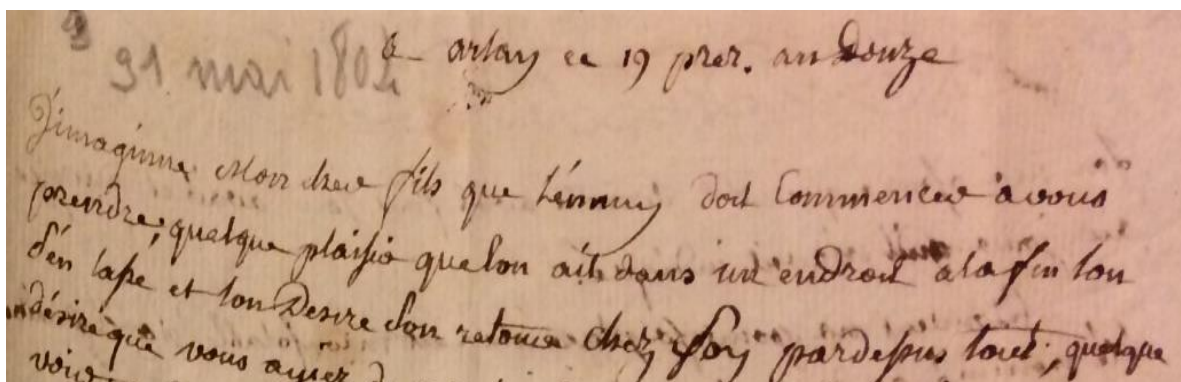 31 mai 1804
a arlay ce 19 prer. an Douze
J'imagine Mon cher fils que l'énnuy doit Commencer a vous
prendre, quelque plaisir quelon ait dans un endroit alafin lon
s'en lasse et lon Desire son retour chez soy pardessus tout, quelque
désire que vous ayiez